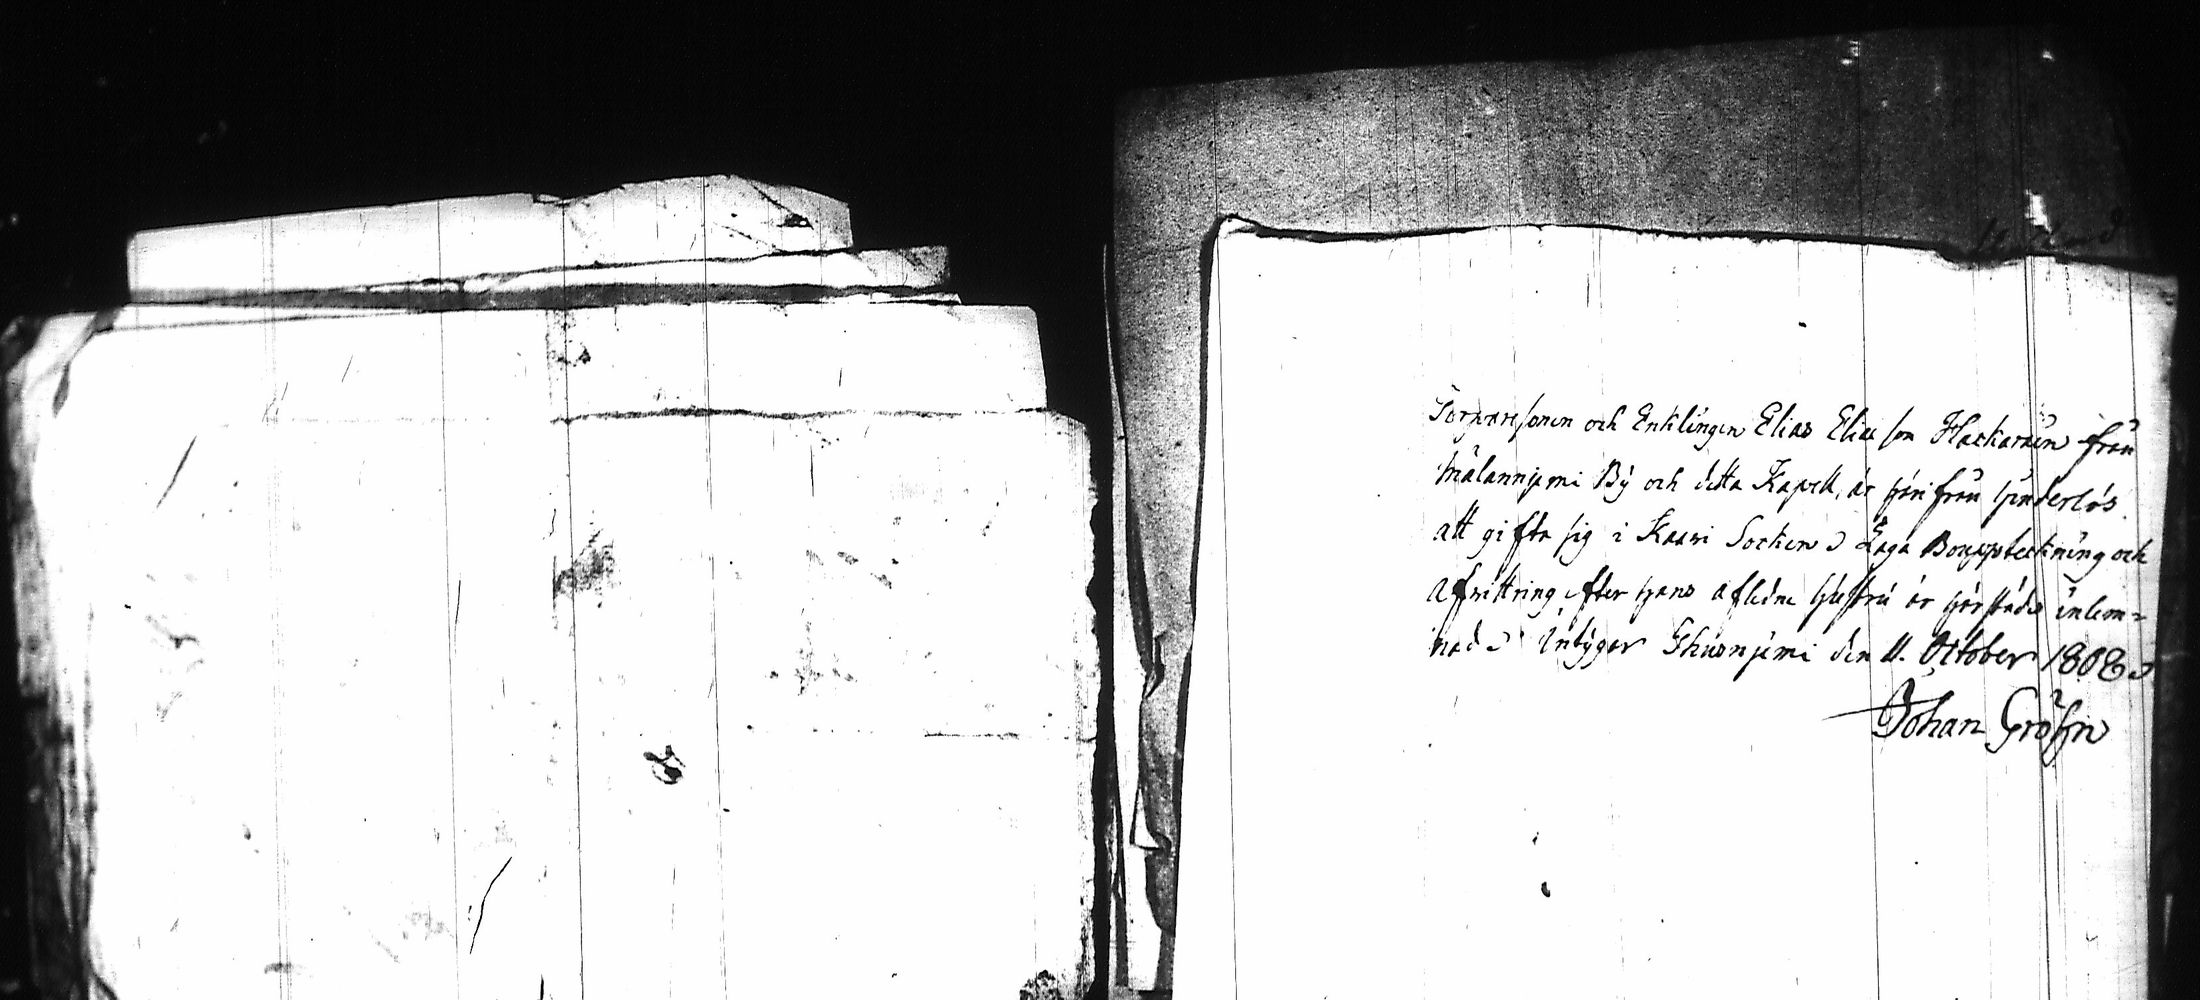 Torparesonen och Enklingen Elias Eliasson Hackarain från
Mälannjemi By och detta Kapell, är härifrån hinderlös
att gifta sig i Kaavi Socken. Laga Bouppteckning och
Afvittring efter hans aflidne Hustru är härstädes inlem=
nad. Intygar Thusnjemi den 11. October 1808.
Johan Gröhn